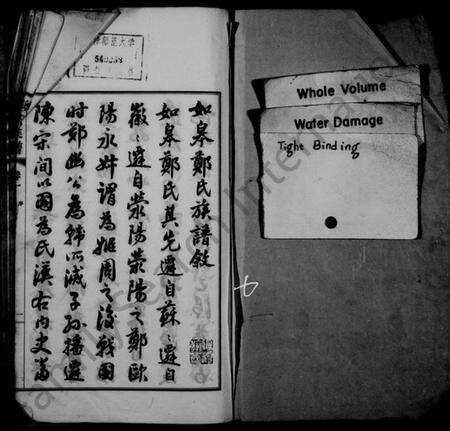 如皋鄭氏族譜敘
如皋鄭氏其先遷自蘇〻遷自
徽〻遷自滎陽滎陽之鄭歐
陽永叔謂為姬周之後戰國
時鄭幽公為韓所滅子孫播遷
陳宋間以國為氏漢右內史當
Whole Volume
Water Damage
Tight Binding